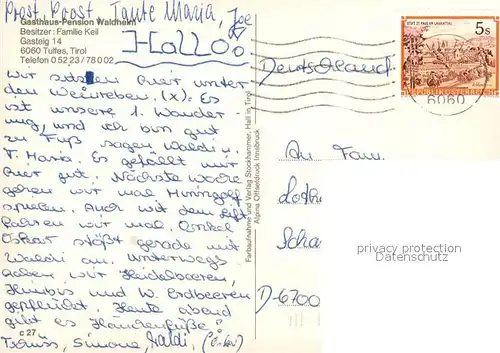 Prost, Prost Tante Maria, Joe
Gasthaus-Pension Waldheim
Besitzer: Familie Keil
Gasteig 14
6060 Tulfes, Tirol
Telefon 0 52 23 / 78 0 02
Hallo
Deutschland
STIFT ST. PAUL IM LAVANTTAL
5 S
REPUBLIK ÖSTERREICH
6060
Wir sitzen hier unter
den Weinreben. (x). Es
ist unsere 1. Wander-
ung, und ich bin gut
zu Fuß sagen Waldi u.
T. Maria. Es gefällt mir
hier gut. Nächste Woche
gehen wir mal Minigolf
spielen. Auch mit dem Lift
fahren wir mal. Onkel
Oskar stößt gerade mit
Waldi an. Unterwegs
haben wir Heidelbeeren,
Himbis und W. Erdbeeren
gepflückt. Heute abend
gibt es
Tschüss, Simone, Waldi,
c 27
Farbaufnahme und Verlag Stockhammer, Hall in Tirol
Alpina Offsetdruck Innsbruck
An Fam.
D-6700
privacy protection
Datenschutz